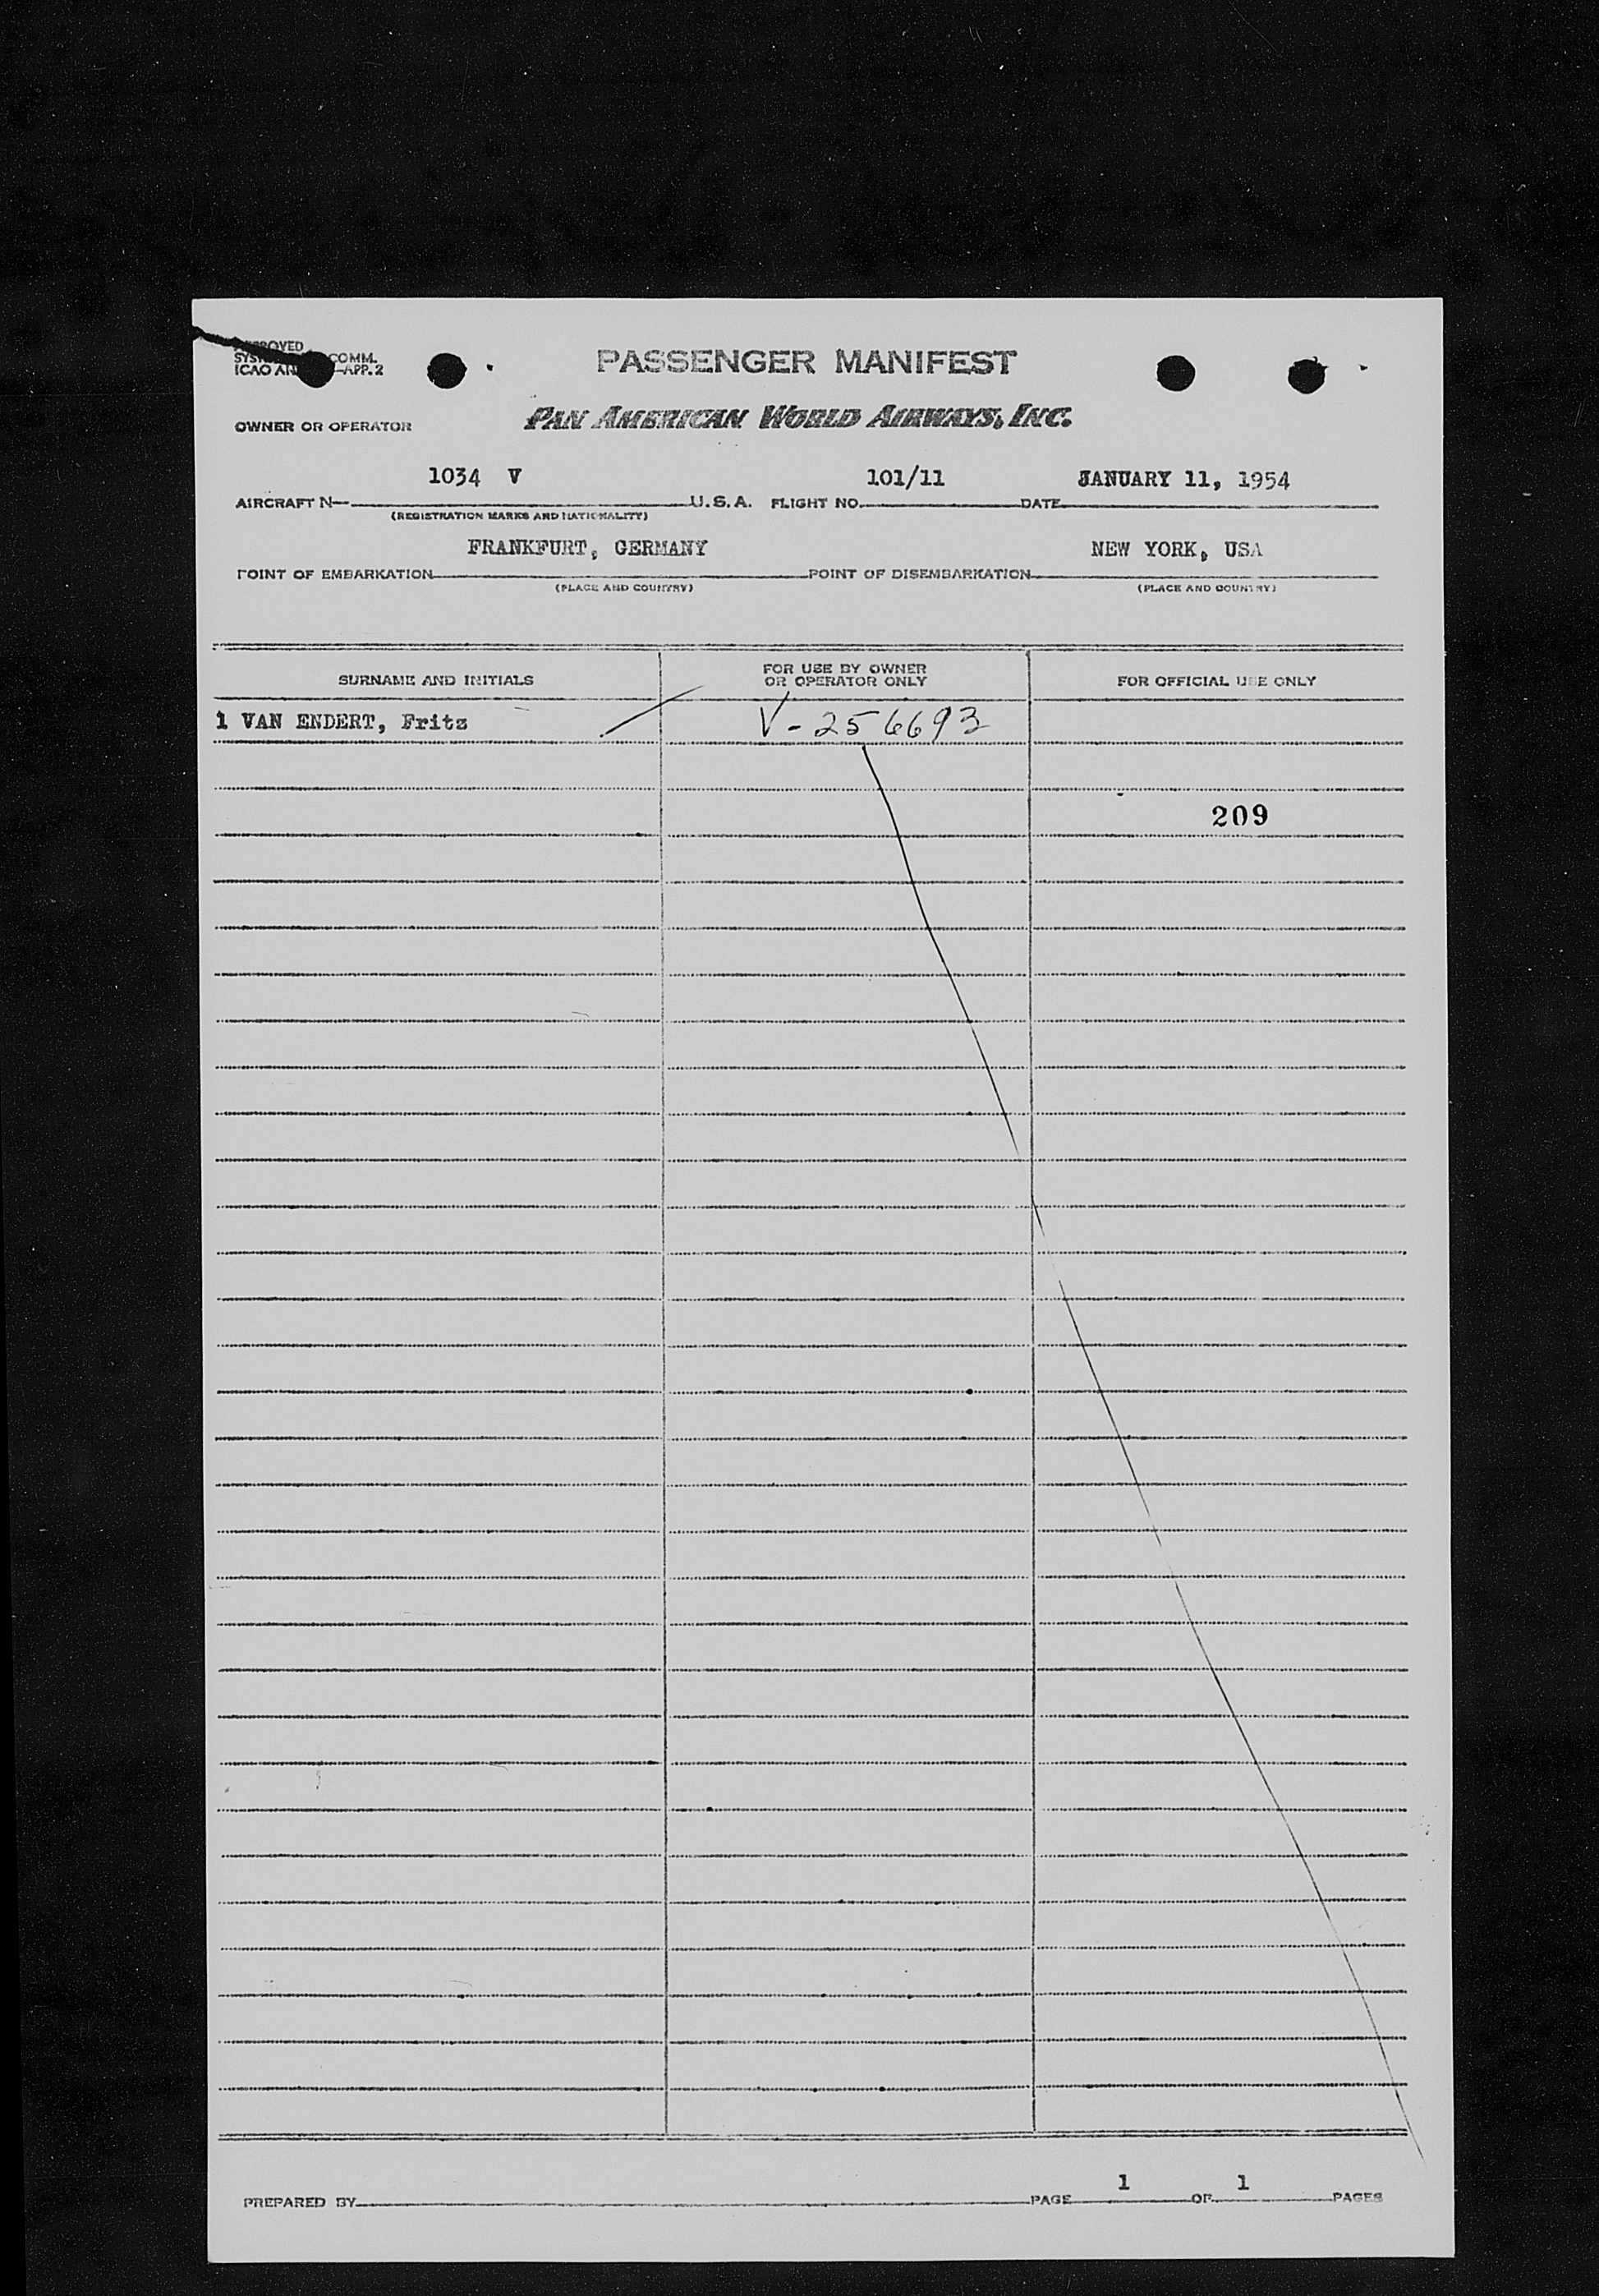 APPROVED
COMM.
ICAO AN —APP. 2
PASSENGER MANIFEST
OWNER OR OPERATOR
PAN AMERICAN WORLD AIRWAYS, INC.
1034 V 101/11 JANUARY 11, 1954
AIRCRAFT N— U.S.A. FLIGHT NO. DATE
(REGISTRATION MARKS AND NATIONALITY)
FRANKFURT, GERMANY NEW YORK, USA
POINT OF EMBARKATION POINT OF DISEMBARKATION
(PLACE AND COUNTRY) (PLACE AND COUNTRY)
SURNAME AND INITIALS FOR USE BY OWNER OR OPERATOR ONLY FOR OFFICIAL USE ONLY
1 VAN ENDERT, Fritz V-256693
209
1 1
PREPARED BY PAGE OF PAGES